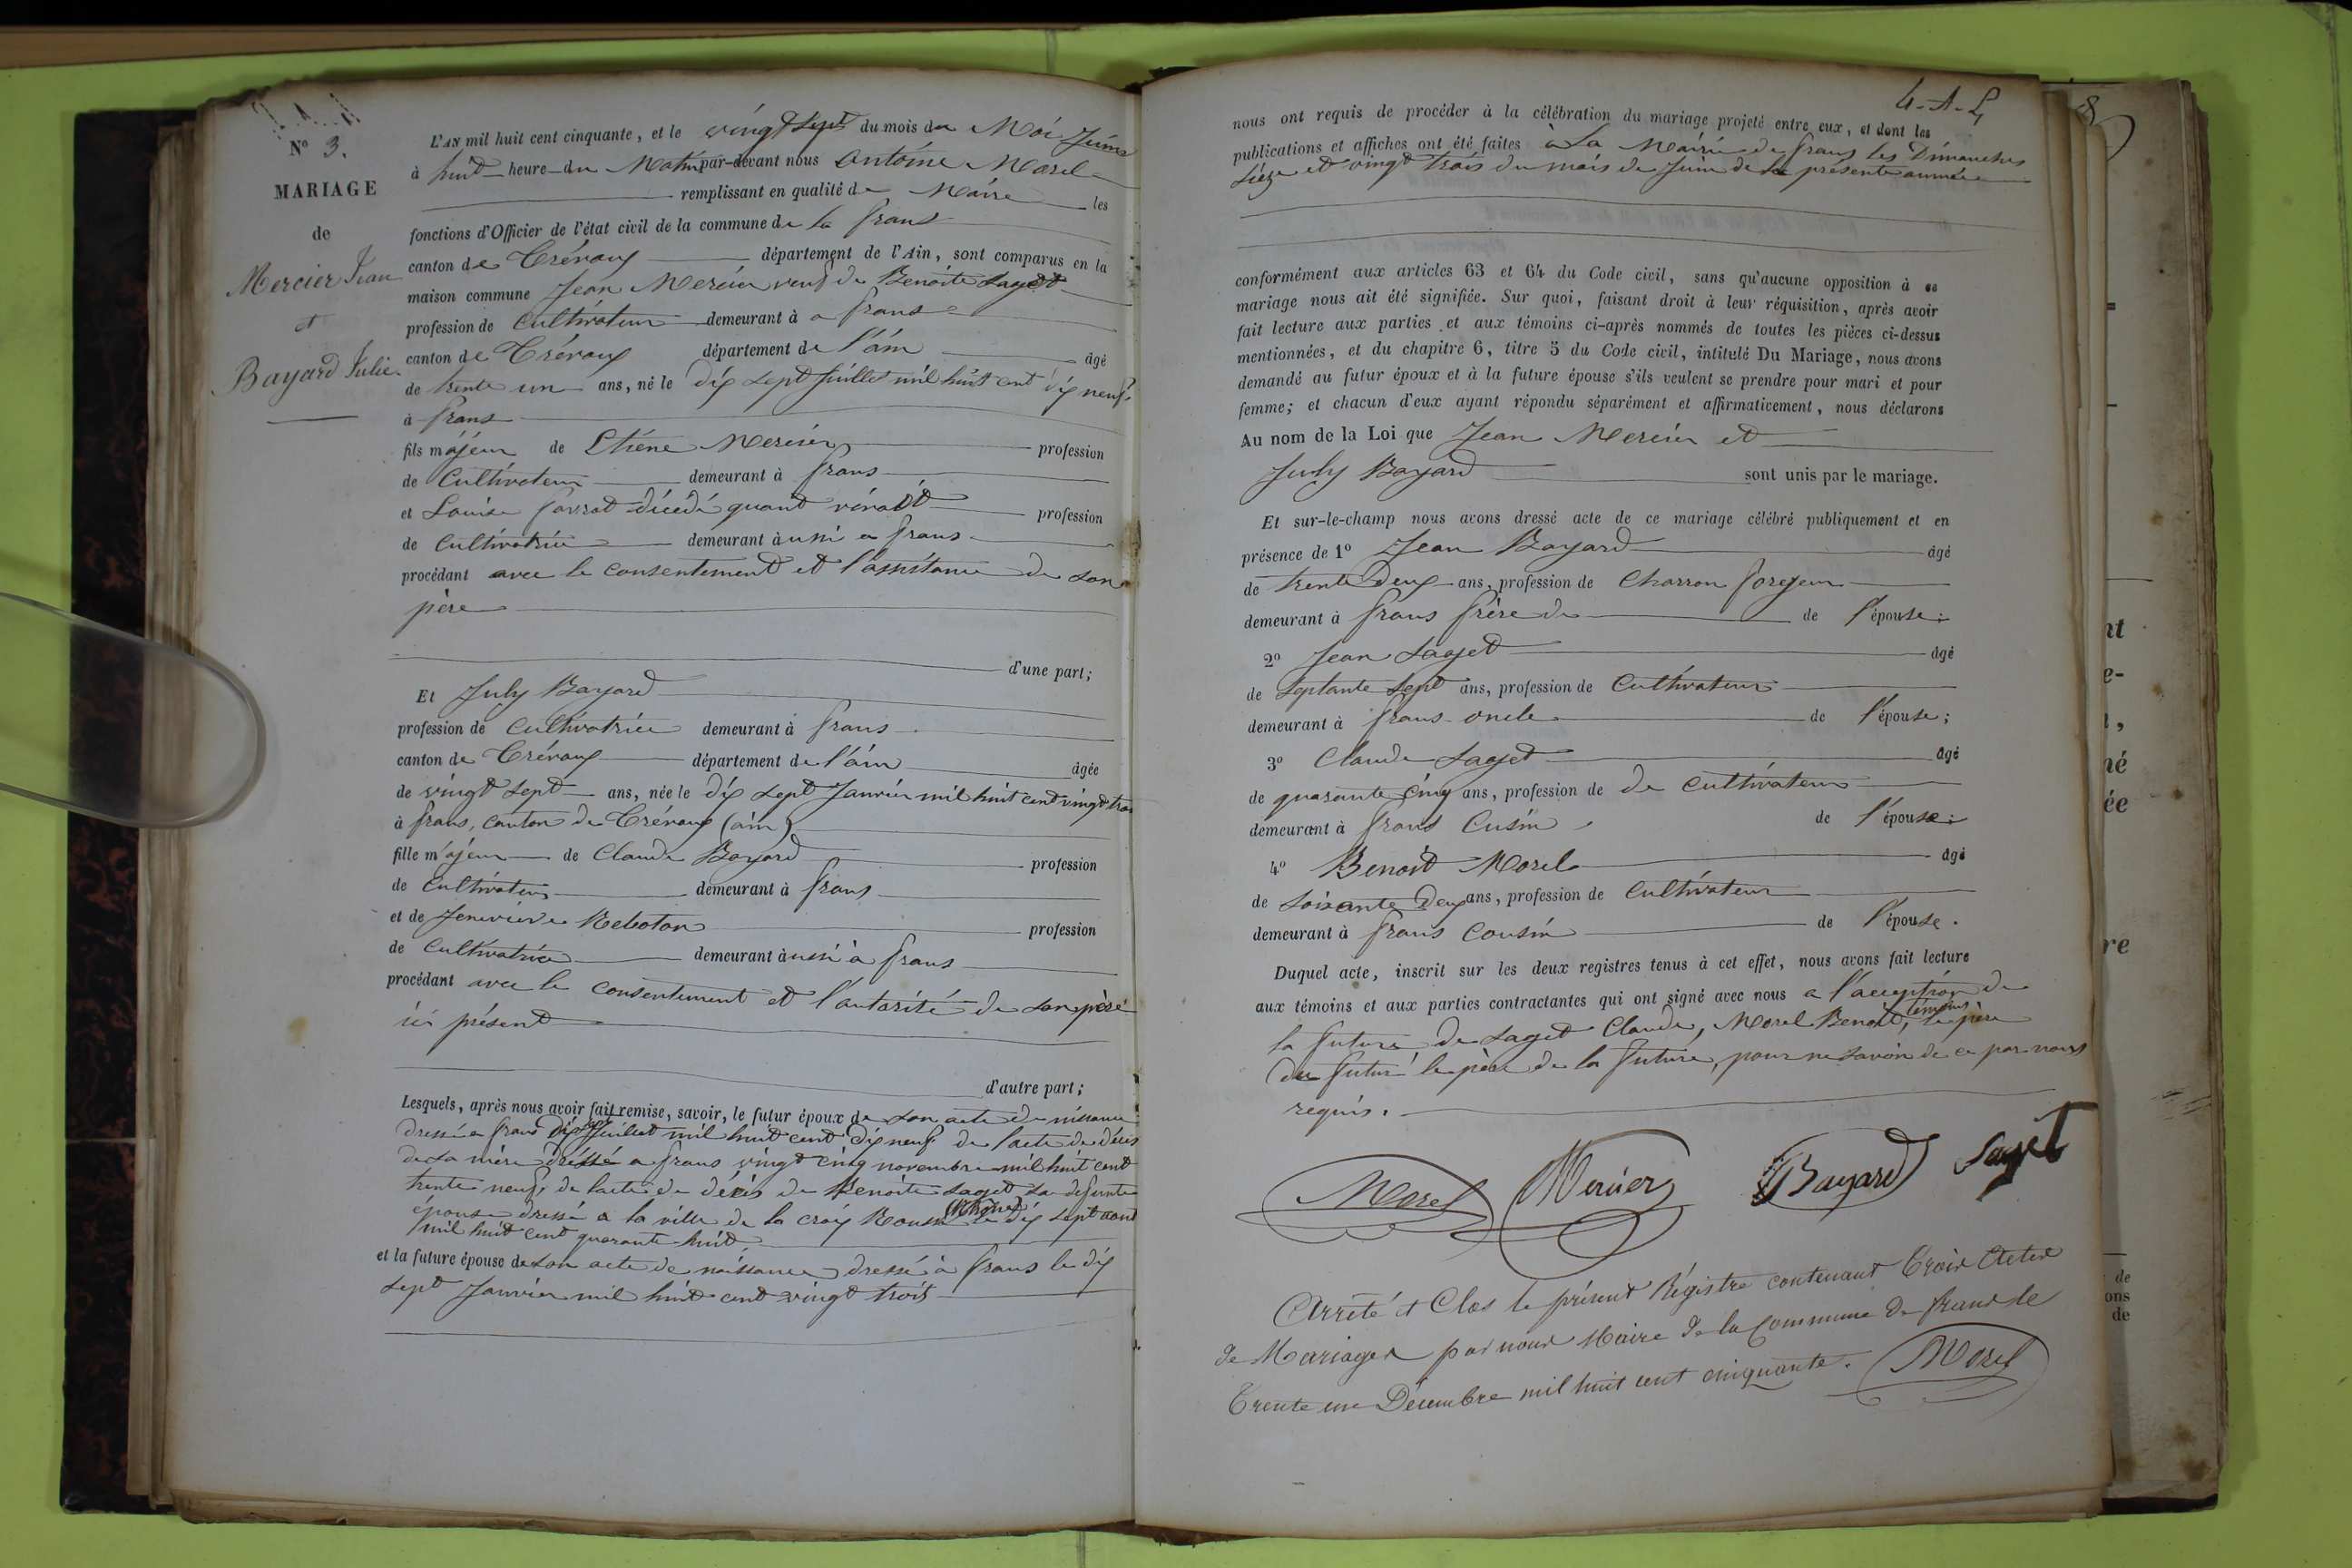 N° 3.
MARIAGE
de
Mercier Jean
et
Bayard Julie.
L'AN mil huit cent cinquante, et le vingt sept du mois de Moi Juins
à huit heure du Matin par-devant nous Antoine Morel
remplissant en qualité de Maire les
fonctions d'Officier de l'état civil de la commune de la frans
canton de Trévoux département de l'Ain, sont comparus en la
maison commune Jean Mercier veuf de Benoite Saget
profession de Cultivateur demeurant à a frans
canton de Trévoux département de l'áin âgé
de trente un ans, né le dix sept Juillet mil huit cent dix neuf,
à frans
fils májeur de Etiène Mercier profession
de Cultivateur demeurant à frans
et Louise décédé quant vivait profession
de Cultivatrice demeurant à ussi a frans
procédant avec le consentement et l'assistance de son
père
d'une part;
Et July Bayard
profession de cultivatrice demeurant à frans
canton de Trévoux département de l'áin âgée
de vingt sept ans, née le dix sept Janvier mil huit cent vingt trois
à frans, canton de Trévoux (ain)
fille m'ajeur de Claude Bayard profession
de Cultivateur demeurant à frans
et de Jenevieve Reboton profession
de Cultivatrice demeurant à ussi à frans
procédant avec le consentement et l'autorité de son père
ici présent
d'autre part;
Lesquels, après nous avoir fait remise, savoir, le futur époux de son acte de nissance
dressé a frans dix sept Juillet mil huit cent dix neuf de l'acte de décès
de sa mère dréssé a frans vingt cinq novembre mil huit cent
trente neuf, de l'acte de décès de Benoite Saget sa defunte
épouse dressé a la ville de la croix Rousse (Rhône) le dix sept aout
mil huit cent quarante huit
et la future épouse de son acte de naissance dressé à frans le dix
sept Janvier mil huit cent vingt trois
4-A-L
nous ont requis de procéder à la célébration du mariage projeté entre eux, et dont les
publications et affiches ont été faites à La Mairie de frans les Dimanches
Sieze et vingt trois du mois de Juin de la présente année
conformément aux articles 63 et 64 du Code civil, sans qu'aucune opposition à ce
mariage nous ait été signifiée. Sur quoi, faisant droit à leur réquisition, après avoir
fait lecture aux parties et aux témoins ci-après nommés de toutes les pièces ci-dessus
mentionnées, et du chapitre 6, titre 5 du Code civil, intitulé Du Mariage, nous avons
demandé au futur époux et à la future épouse s'ils veulent se prendre pour mari et pour
femme; et chacun d'eux ayant répondu séparément et affirmativement, nous déclarons
Au nom de la Loi que Jean Mercier et
July Bayard sont unis par le mariage.
Et sur-le-champ nous avons dressé acte de ce mariage célébré publiquement et en
présence de 1° Jean Bayard âgé
de trente Deux ans, profession de Charron forgeur
demeurant à frans frère de de l'épouse;
2° Jean Saget âgé
de Septante Sept ans, profession de Cultivateur
demeurant à frans oncle de l'épouse;
3° Claude Saget âgé
de quarante cinq ans, profession de de Cultivateur
demeurant à frans Cusin de l'épouse;
4° Benoit Morel âgé
de Soixante Deux ans, profession de Cultivateur
demeurant à frans Cousin de l'épouse.
Duquel acte, inscrit sur les deux registres tenus à cet effet, nous avons fait lecture
aux témoins et aux parties contractantes qui ont signé avec nous a l'acception de
la future, de Saget Claude, Morel Benoit, témoins le père
du futur le père de la future, pour ne savoir de ce par nous
requis.
Morel Mercier JBayard Saget
Arrêté et Clos le présent Régistre contenant Trois Actes
de Mariages par nous Maire de la Commune de frans le
Trente un Décembre mil huit cent cinquante. Morel